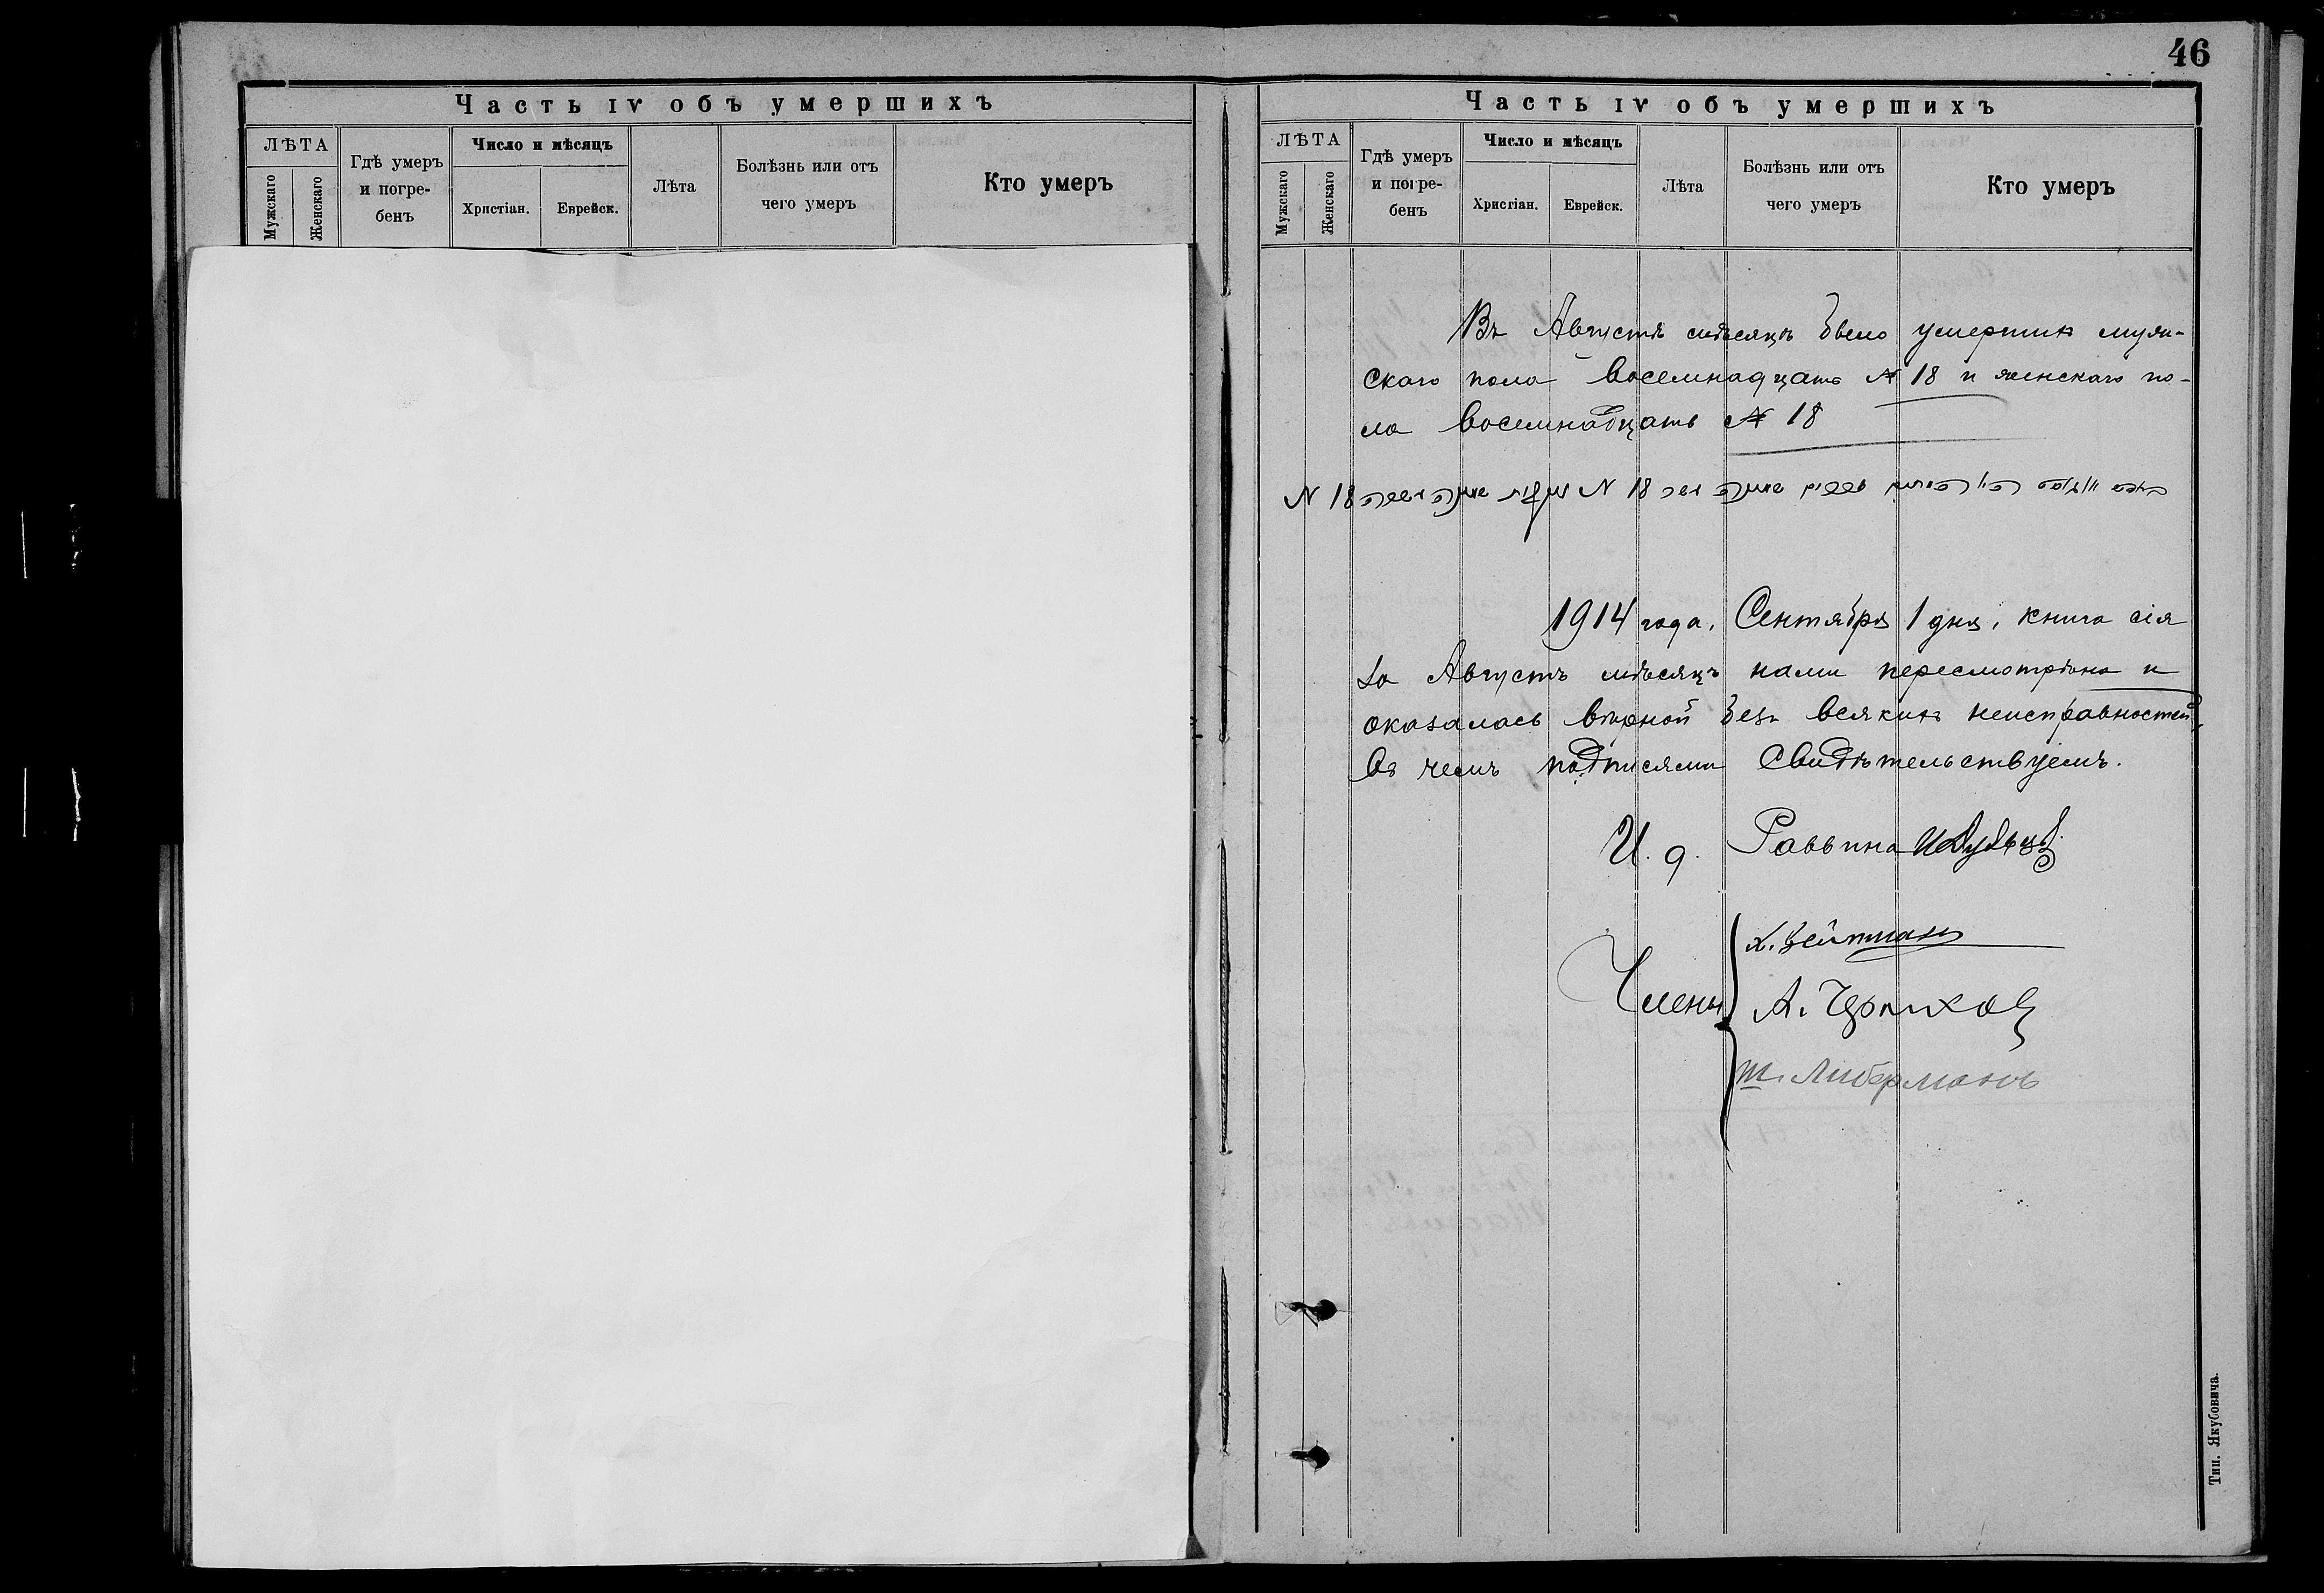 46
Часть IV объ умершихъ
ЛѢТА
Мужскаго
Женскаго
Гдѣ умеръ
и погре-
бенъ
Число и мѣсяцъ
Христіан.
Еврейск.
Лѣта
Болѣзнь или отъ
чего умеръ
Кто умеръ
Часть IV объ умершихъ
ЛѢТА
Мужскаго
Женскаго
Гдѣ умеръ
и погре-
бенъ
Число и мѣсяцъ
Христіан.
Еврейск.
Лѣта
Болѣзнь или отъ
чего умеръ
Кто умеръ
Въ Августѣ мѣсяцѣ было умершихъ муж-
скаго пола восемнадцать № 18 и женскаго по-
ла восемнадцать № 18
N 18 N 18
1914 года, Сентября 1 дня, книга сія
за Августъ мѣсяцъ нами пересмотрѣна и
оказалась вѣрной безъ всякихъ неисправностей,
въ чемъ подписями свидѣтельствуемъ.
И. д. Раввина
Члены
А.
Ш. Либерманъ
Тип. Якубовича.